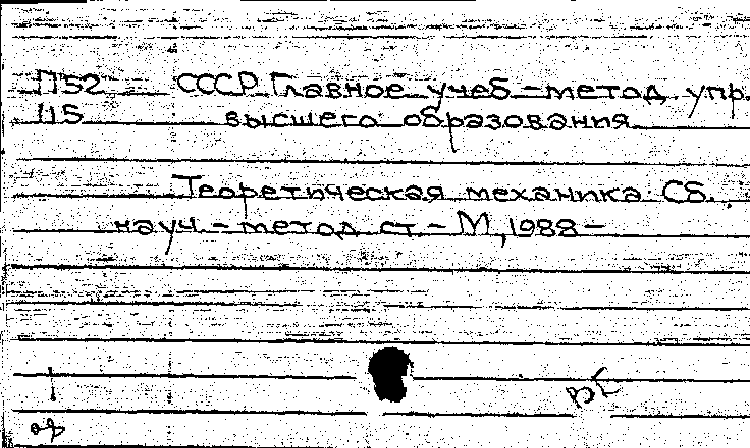 П52 СССР. Главное учеб.-метод. упр.
115 высшего образования.
Теоретическая механика: Сб.
науч.-метод. ст. - М, 1988 -